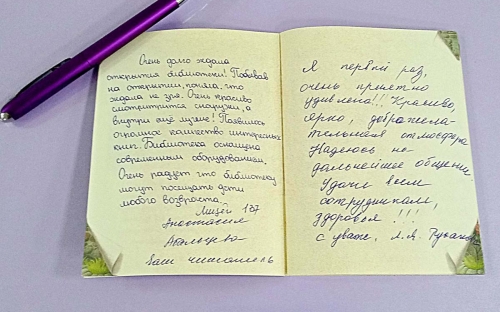 Очень долго ждала
открытия библиотеки! Побывав
на открытии, поняла, что
ждала не зря. Очень красиво
смотрится снаружи, а
внутри ещё лучше! Появилось
огромное количество интересных
книг. Библиотека оснащена
современным оборудованием.
Очень радует что библиотеку
могут посещать дети
любого возраста.
Лицей 187
Анастасия
Ваш читатель
Я первый раз,
очень приятно
удивлена!! Красиво,
ярко, доброжела-
тельная атмосфера
Надеюсь на
дальнейшее общение
Удачи всем
сотрудникам,
здоровья !!!
с уваж. Л.А.